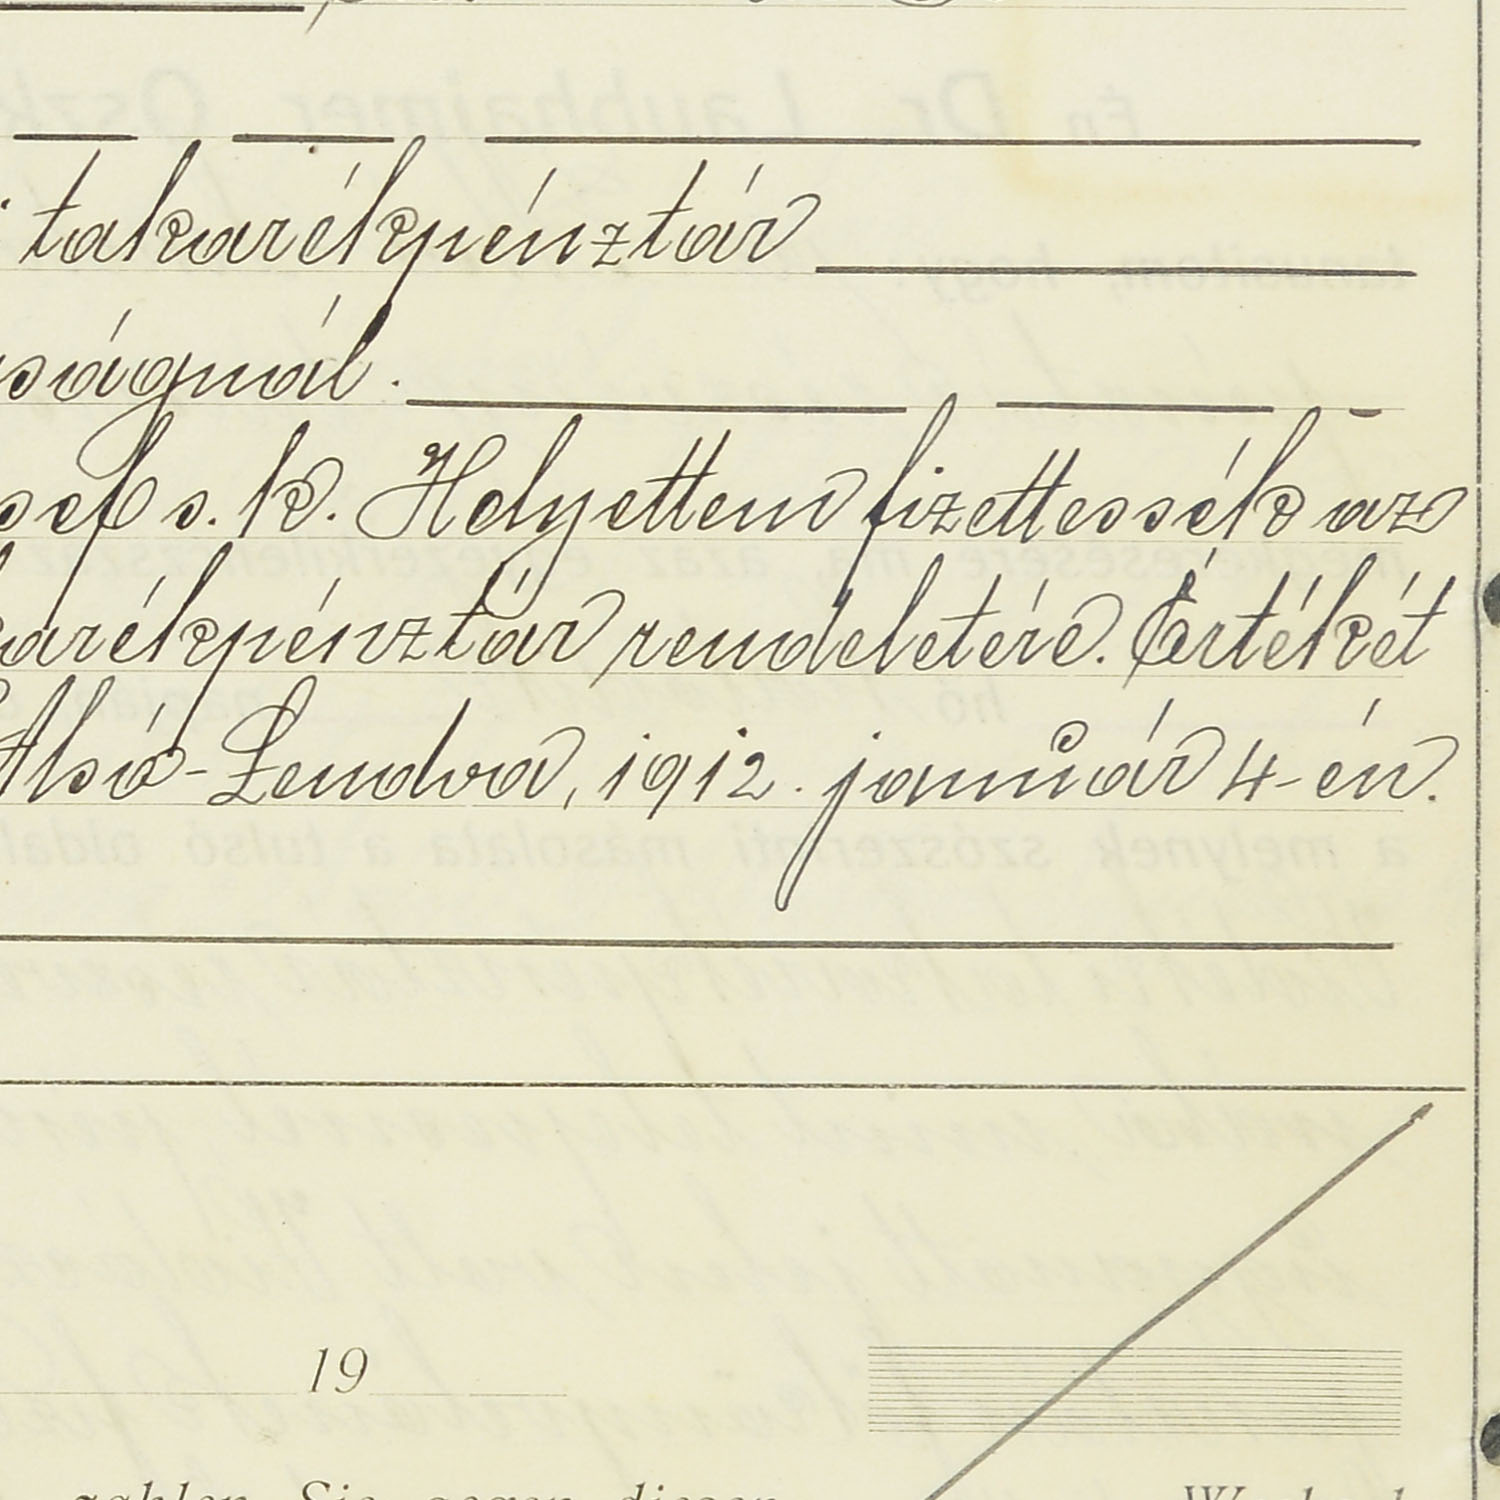 takarékpénztár
ságnál.
sef s. k. Helyettem fizettessék az
karékpénztár rendeletére. Értékét
Alsó-Lendva, 1912. január 4-én.
19
zahlen Sie gegen diesen